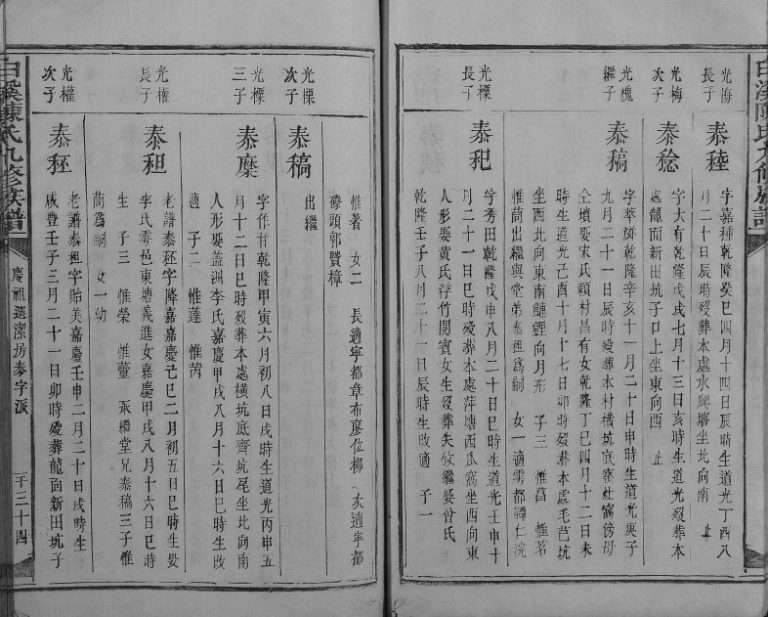 白溪陳氏九修族譜
光梅
長子
泰種
字嘉種乾隆癸巳四月十四日辰時生道光丁酉八
月二十日辰時歿葬本處水輿塘坐北向南 止
光梅
次子
泰稔
字大有乾隆戊戌七月十三日亥時生道光歿葬本
處龍面新田坑子口上坐東向西 止
光槐
繼子
泰稿
字華 乾隆辛亥十一月二十日申時生道光庚子
九月二十一日辰時歿葬本村橫坑底窰灶窩傍母
仝墳娶宋氏賴村昌有女乾隆丁巳四月十二日未
時生道光己酉十月十七日卯時歿葬本處毛芭坑
坐西北向東南 鯉向月形 子三 惟菖 惟茗
惟蒟出繼與堂弟泰秬爲嗣 女一適雩都譚仁浣
光檪
長子
泰秜
字秀田乾隆戊申八月二十日巳時生道光壬申十
月二十一日巳時歿葬本處萍塘西瓜窩坐西向東
人形娶黃氏浮竹閣賓女生歿葬失攷繼娶曾氏
乾隆壬子八月二十一日辰時生敗適 子一
惟著 女二 長適寧都章布廖位柳 次適寧都
磜頭郭贊樟
光檪
次子
泰稿
出繼
光檪
三子
泰穈
字作甘乾隆甲寅六月初八日戌時生道光丙申五
月十二日巳時歿葬本處橫坑底齊坑尾坐北向南
人形娶盖洲李氏嘉慶甲戌八月十六日巳時生敗
適 子二 惟蓬 惟芮
光權
長子
泰秬
老譜泰秠字降嘉嘉慶己巳二月初五日巳時生娶
李氏雩邑東塘義進女嘉慶甲戌八月十六日巳時
生 子三 惟榮 惟蕈 承繼堂兄泰稿三子惟
蒟爲嗣 女一幼
光權
次子
泰秠
老譜泰秬字貽美嘉慶壬申二月二十日戌時生
咸豐壬子三月二十一日卯時歿葬龍面新田坑子
白溪陳氏九修族譜
慶祖選潔房泰字派
一千三十四